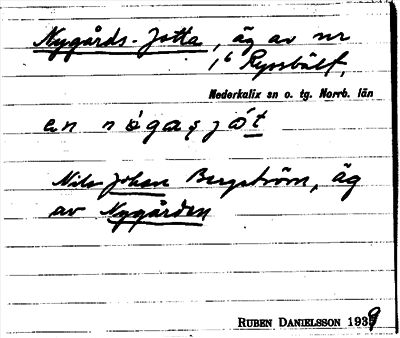 Nygårds-Jotta, äg av nr
1⁶ Ryssbält,
Nederkalix sn o. tg. Norrb. län
Nils Johan Bergström, äg
av Nygården
RUBEN DANIELSSON 1939